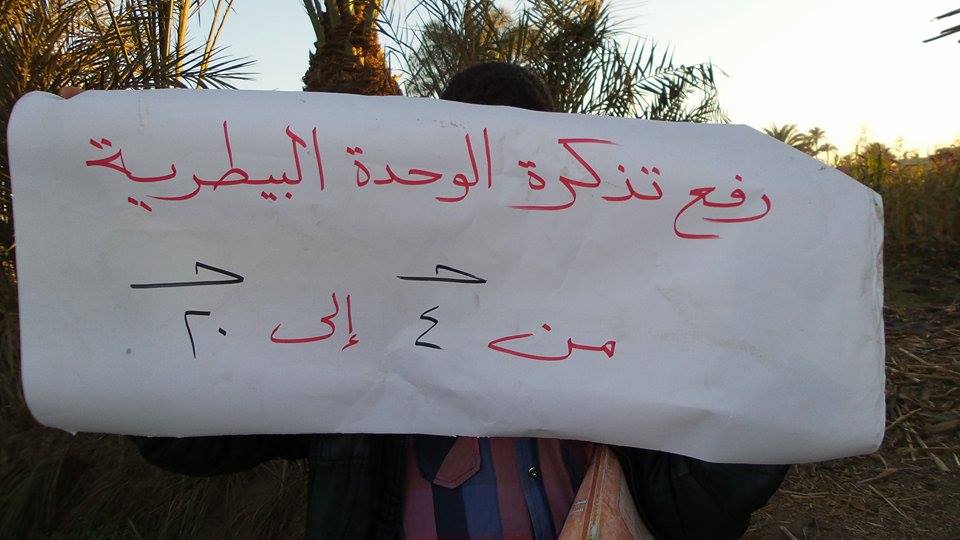 رفع تذكرة الوحدة البيطرية
من ٤ إلى ٢٠